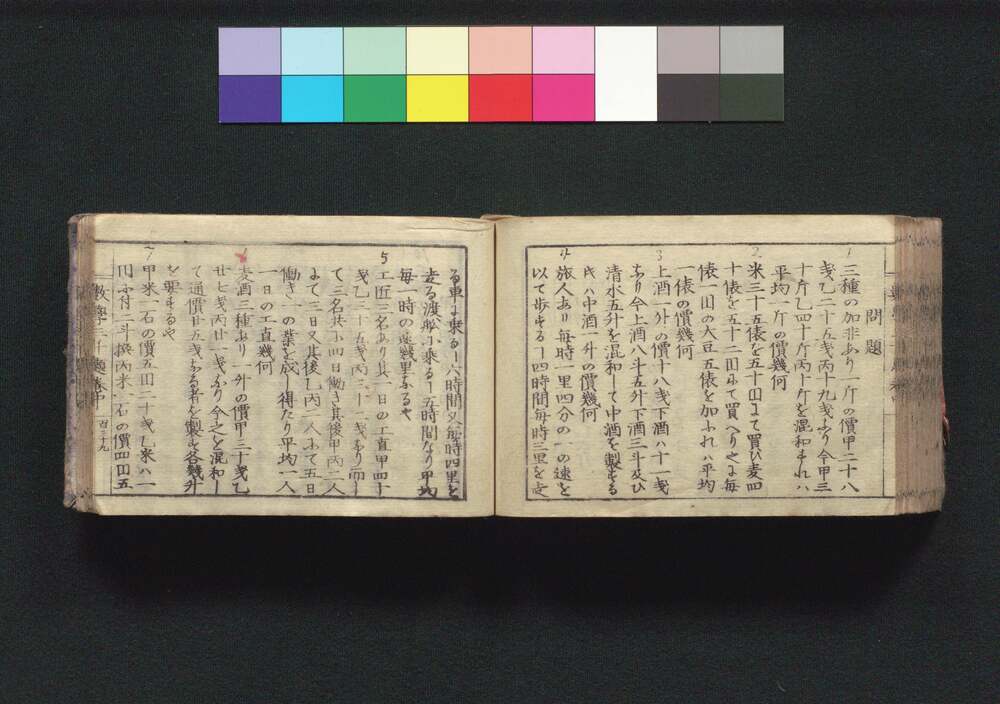 問題
1 三種の加非あり一斤の價甲二十八
戔乙二十五戔丙十九戔なり今甲三
十斤乙四十斤丙十斤を混和すれハ
平均一斤の價幾何
2 米三十五俵を五十円にて買ひ麦四
十俵を五十二円にて買へり之に毎
俵一円の大豆五俵を加ふれハ平均
一俵の價幾何
3 上酒一升の價十八戔下酒ハ十一戔
なり今上酒八斗五升下酒三斗及ひ
清水五升を混和して中酒を製する
時ハ中酒一升の價幾何
4 旅人あり毎時一里四分の一の速を
以て歩する四時間毎時三里を走
る車に乗る六時間又毎時四里を
走る渡船に乗る五時間なり平均
毎一時の速幾里なるや
5 工匠三名あり其一日の工直甲四十
戔乙三十五戔丙三十二戔なり而し
て三名共に四日働き其後甲丙二人
にて三日又其後乙丙二人にて五日
働き一の業を成し得たり平均一人
一日の工直幾何
6 麦酒三種あり一升の價甲三十戔乙
廿七戔丙廿一戔なり今之を混和し
て通價廿五戔なる者を製す各幾升
を要するや
7 甲米一石の價五円二十戔乙米ハ一
円に付二斗 丙米一石の價四円五
數學三千題巻中 四十九